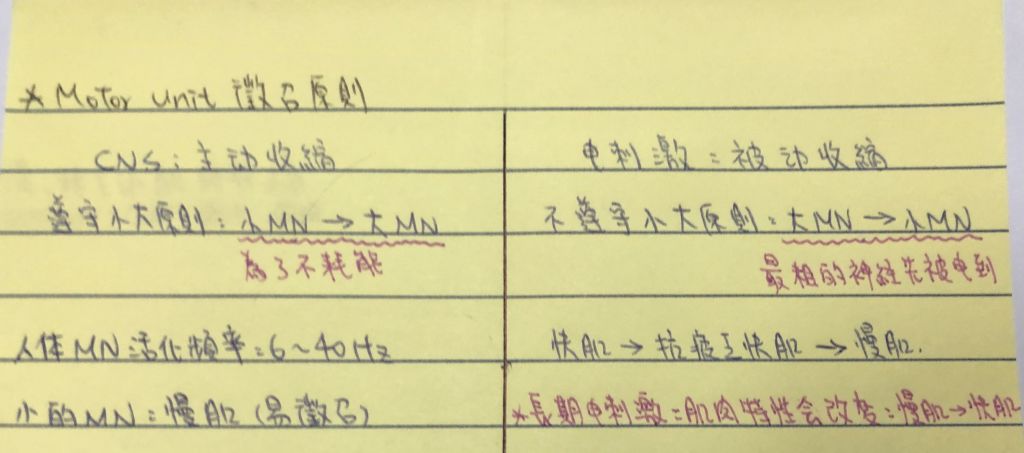 * Motor unit 徵召原則
CNS：主动收縮
遵守小大原則：小MN → 大MN
為了不耗能
人体MN活化頻率：6~40Hz
小的MN：慢肌(易徵召)
电刺激：被动收縮
不遵守小大原則：大MN → 小MN
最粗的神経先被电到
快肌 → 抗疲乏快肌 → 慢肌.
*長期电刺激：肌肉特性会改变：慢肌→快肌